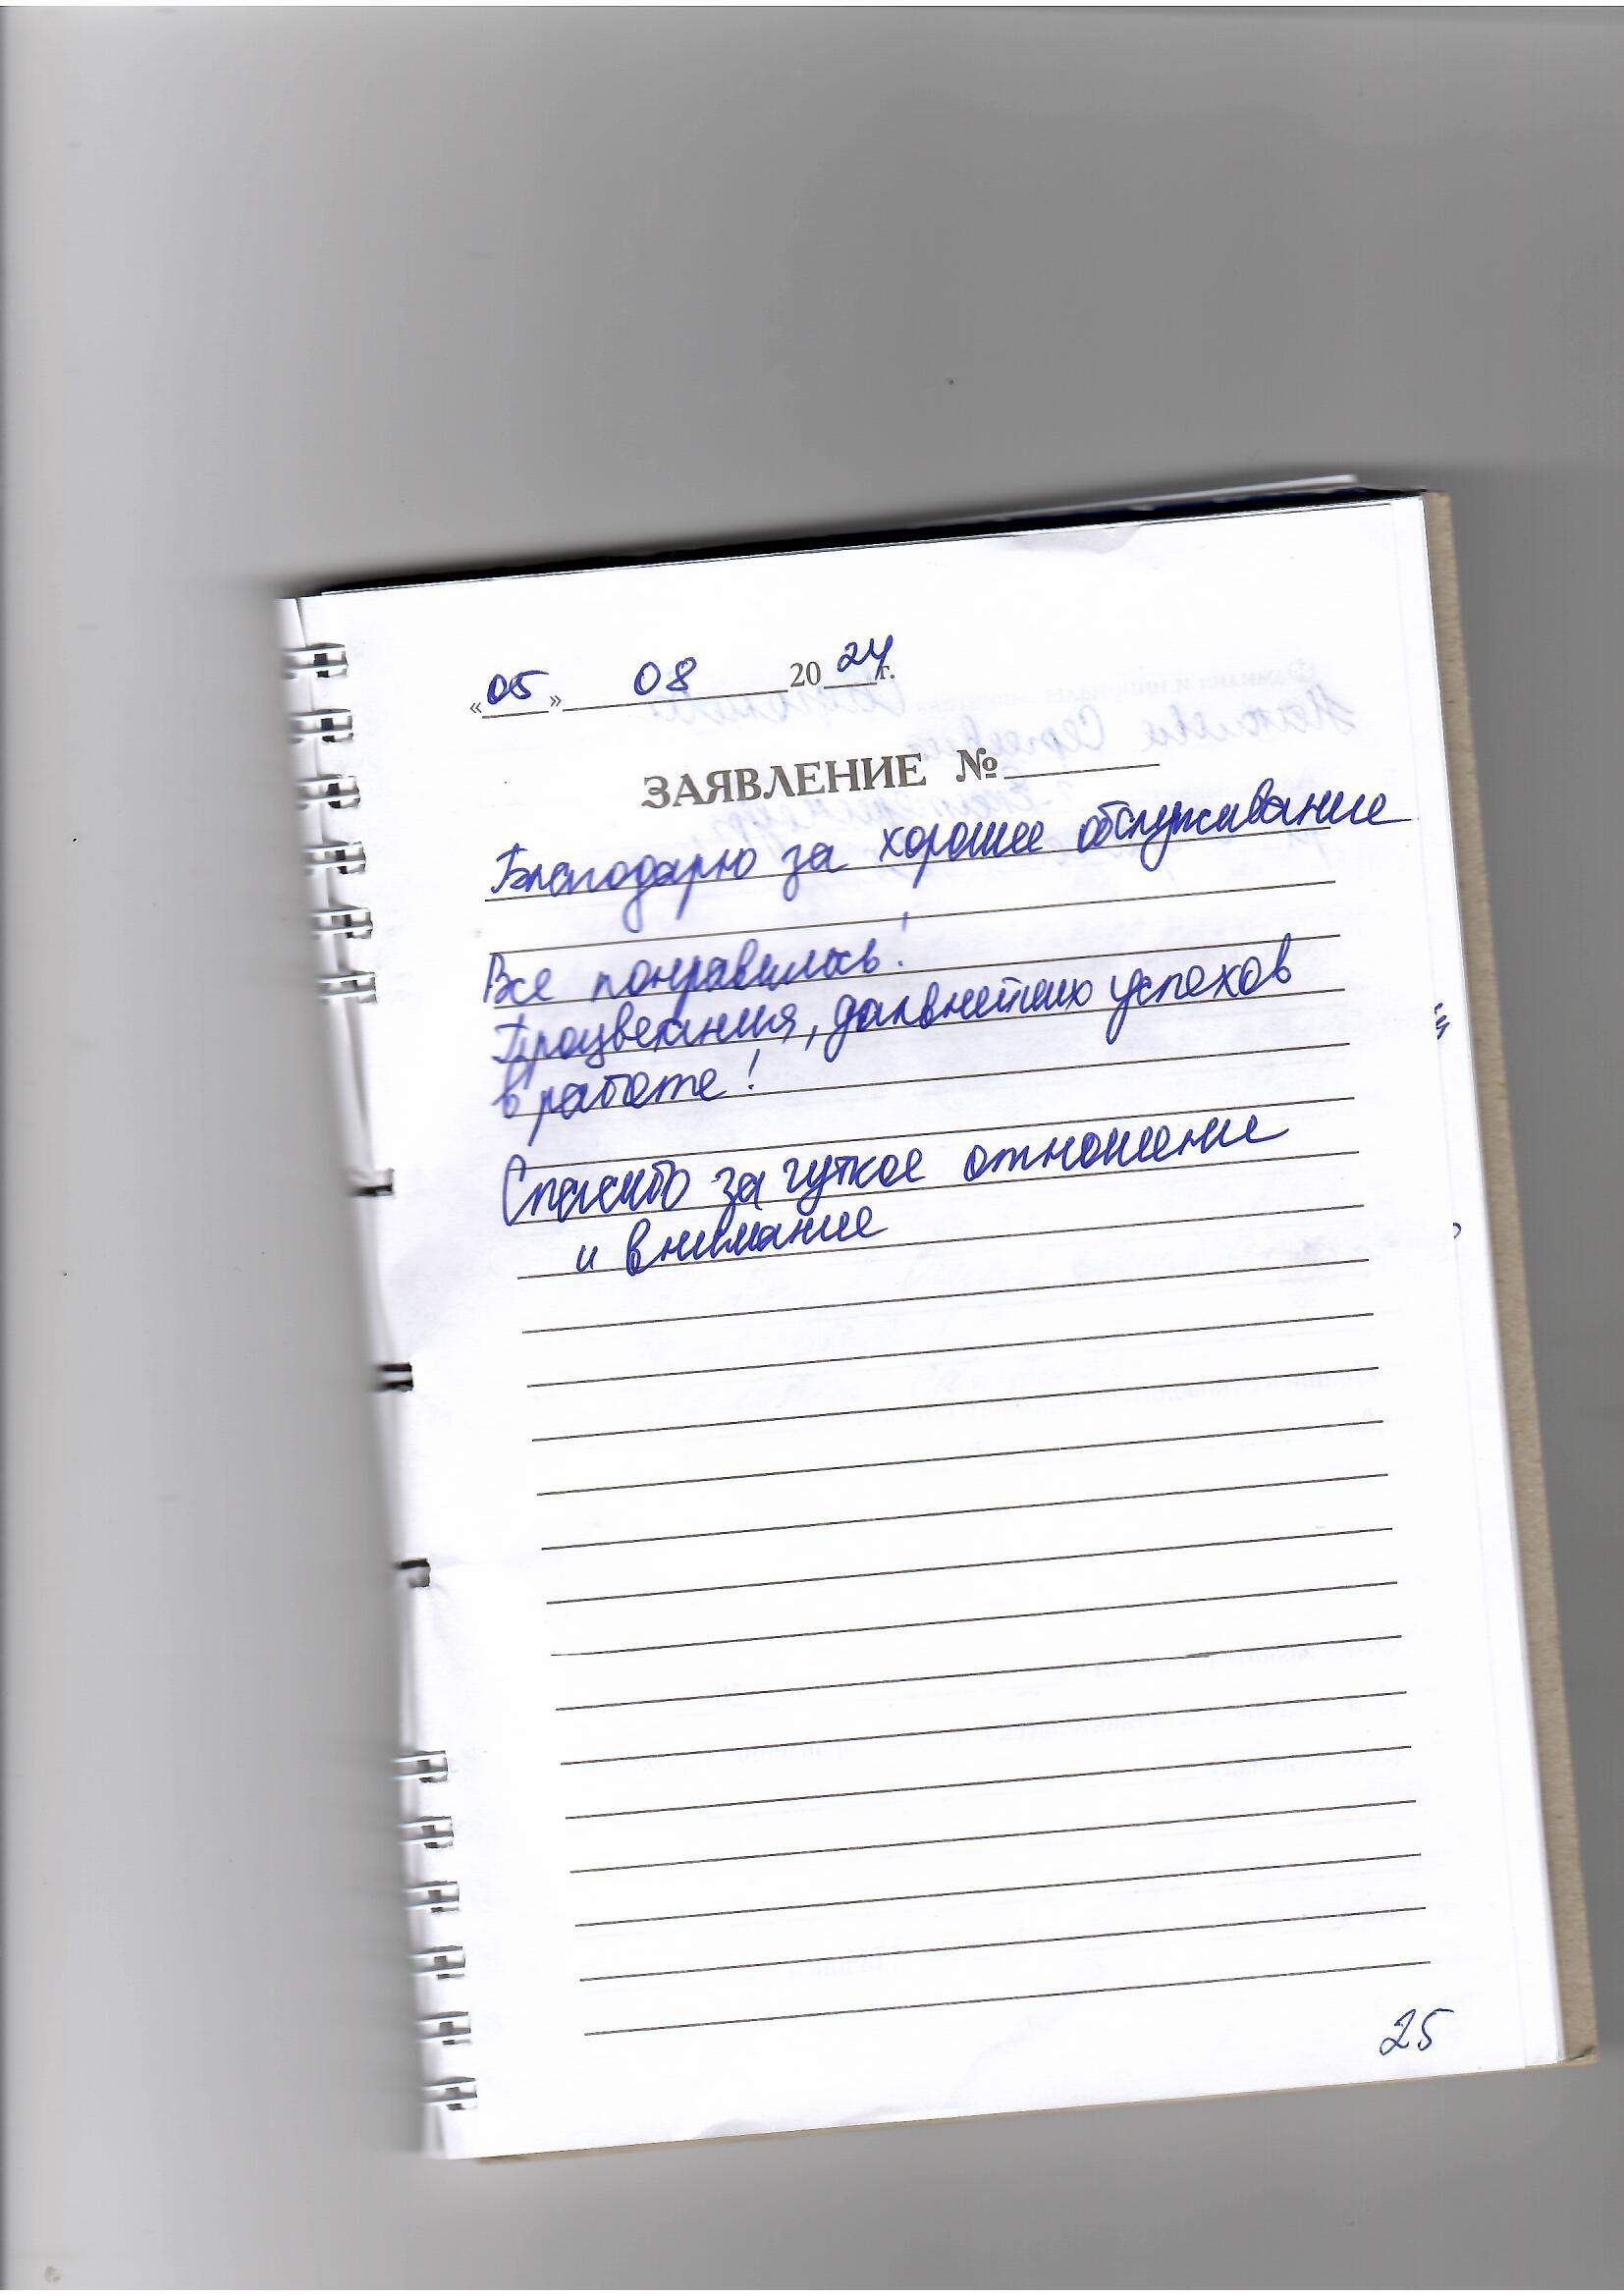 «05» 08 2024 г.
ЗАЯВЛЕНИЕ №
Благодарю за хорошее обслуживание
Все понравилось!
Процветания, дальнейших успехов
в работе!
Спасибо за чуткое отношение
и внимание
25